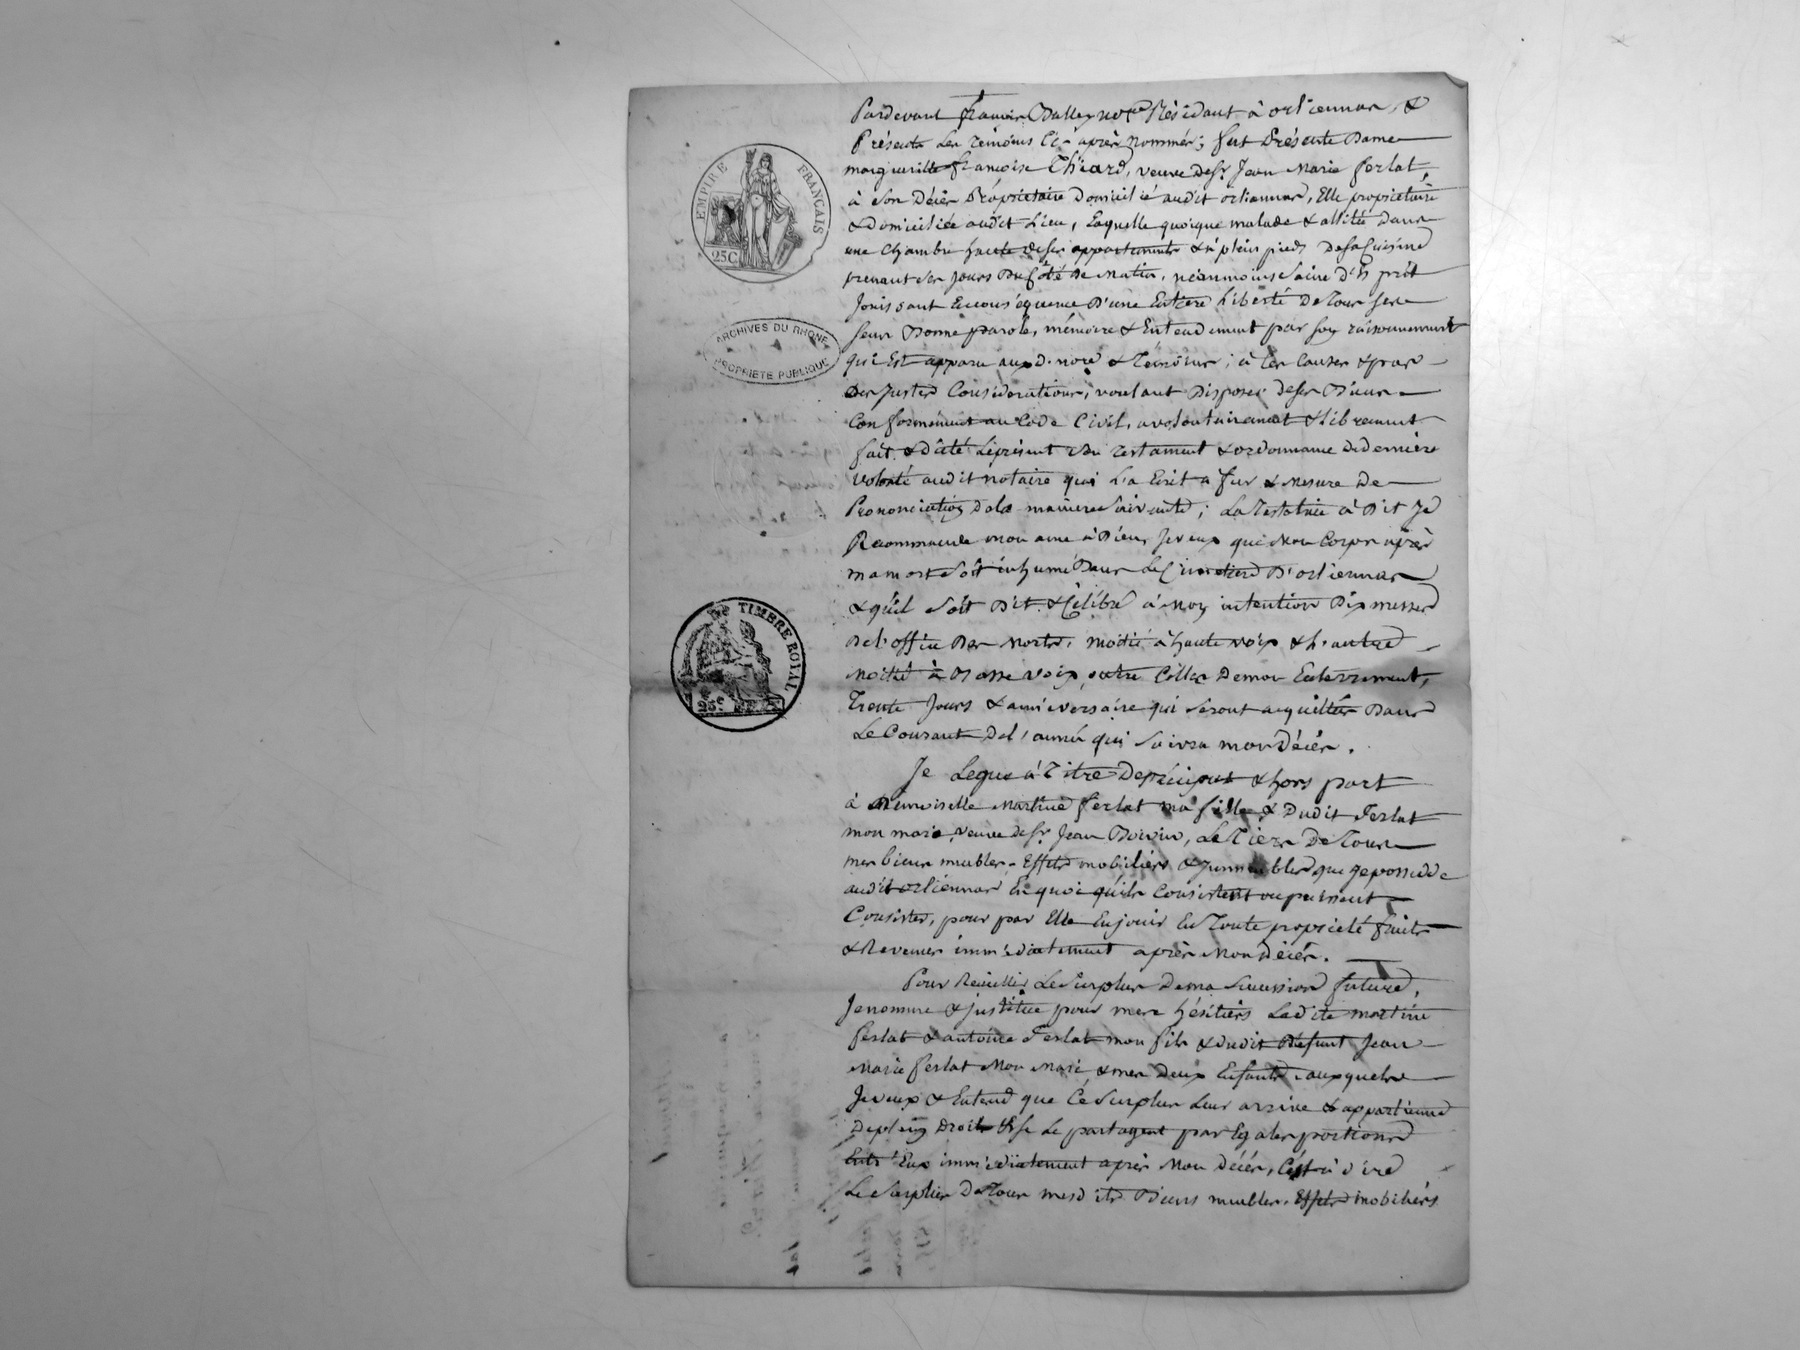 EMPIRE FRANÇAIS
25C
ARCHIVES DU RHONE
PROPRIÉTÉ PUBLIQUE
TIMBRE ROYAL
25c
Pardevant françois Balley no.re Résidant à orliennas, &
Présents les Témoins Ci-après nommés; fut Présente Dame
margueritte françoise Thiard, veuve de Sr. Jean Marie ferlat,
à son Décès Propriétaire Domicilié audit orliennas, Elle propriétaire
& Domiciliée audit Lieu, Laquelle quoique malade & allitée Dans
une Chambre haute de ses appartements & à plein pieds De sa Cuisine
prenant ses jours Du Côté de Matin, néanmoins Saine D'Esprit
Jouissant En conséquence D'une Entière Liberté De Tous ses
sens Bonne parole, mémoire & Entendement par son raisonnement
qui Est apparu auxd. no.re & Témoins; à Ces Causes & par
Des justes Considérations, voulant Disposer de ses Biens
Conformément au Code Civil, a volontairement & Librement
fait & dicté Le présent Testament & ordonnance De dernière
volonté audit notaire qui L'a Ecrit a fur & Mesure De
Prononciation de la manière Suivante; La Testatrice à Dit Je
Recommande mon ame à Dieu, Je veux que Mon Corps après
ma mort Soit inhumé Dans Le Cimetière D'orliennas
& qu'il soit Dit & Célébré à Mon intention Dix messes
De L'office Des Morts, moitié à haute voix & L'autre
Moitié à Basse voix, outre Celles De mon Enterrement,
Trente Jours & anniversaire qui Seront acquittés Dans
Le Courant De L'année qui Suivra mon Décès.
Je Legue à Titre De préciput & hors part
à Demoiselle Martine ferlat ma fille & Dudit Ferlat
mon mari, veuve de Sr. Jean, Le Tiers De Tous
mes biens meubles, Effets mobiliers & immeubles que je possède
audit orliennas En quoi qu'ils Consistent ou puissent
Consister, pour par Elle En jouir En Toute propriété fruits
& Revenus immédiatement après Mon Décès.
Pour Recueillir Le Surplus De ma Succession future,
Je nomme & institue pour mes héritiers Ladite martine
ferlat & antoine Ferlat mon fils & dudit Défunt Jean
Marie ferlat Mon Mari, & mes Deux Enfants, auxquels
Je veux & Entend que Ce Surplus Leur arrive & appartienne
De plein Droit & se Le partagent par Egales portions
Entr'Eux immédiatement après Mon Décès, C'est à dire
Le Surplus De Tous mesdits Biens meubles, Effets mobiliers